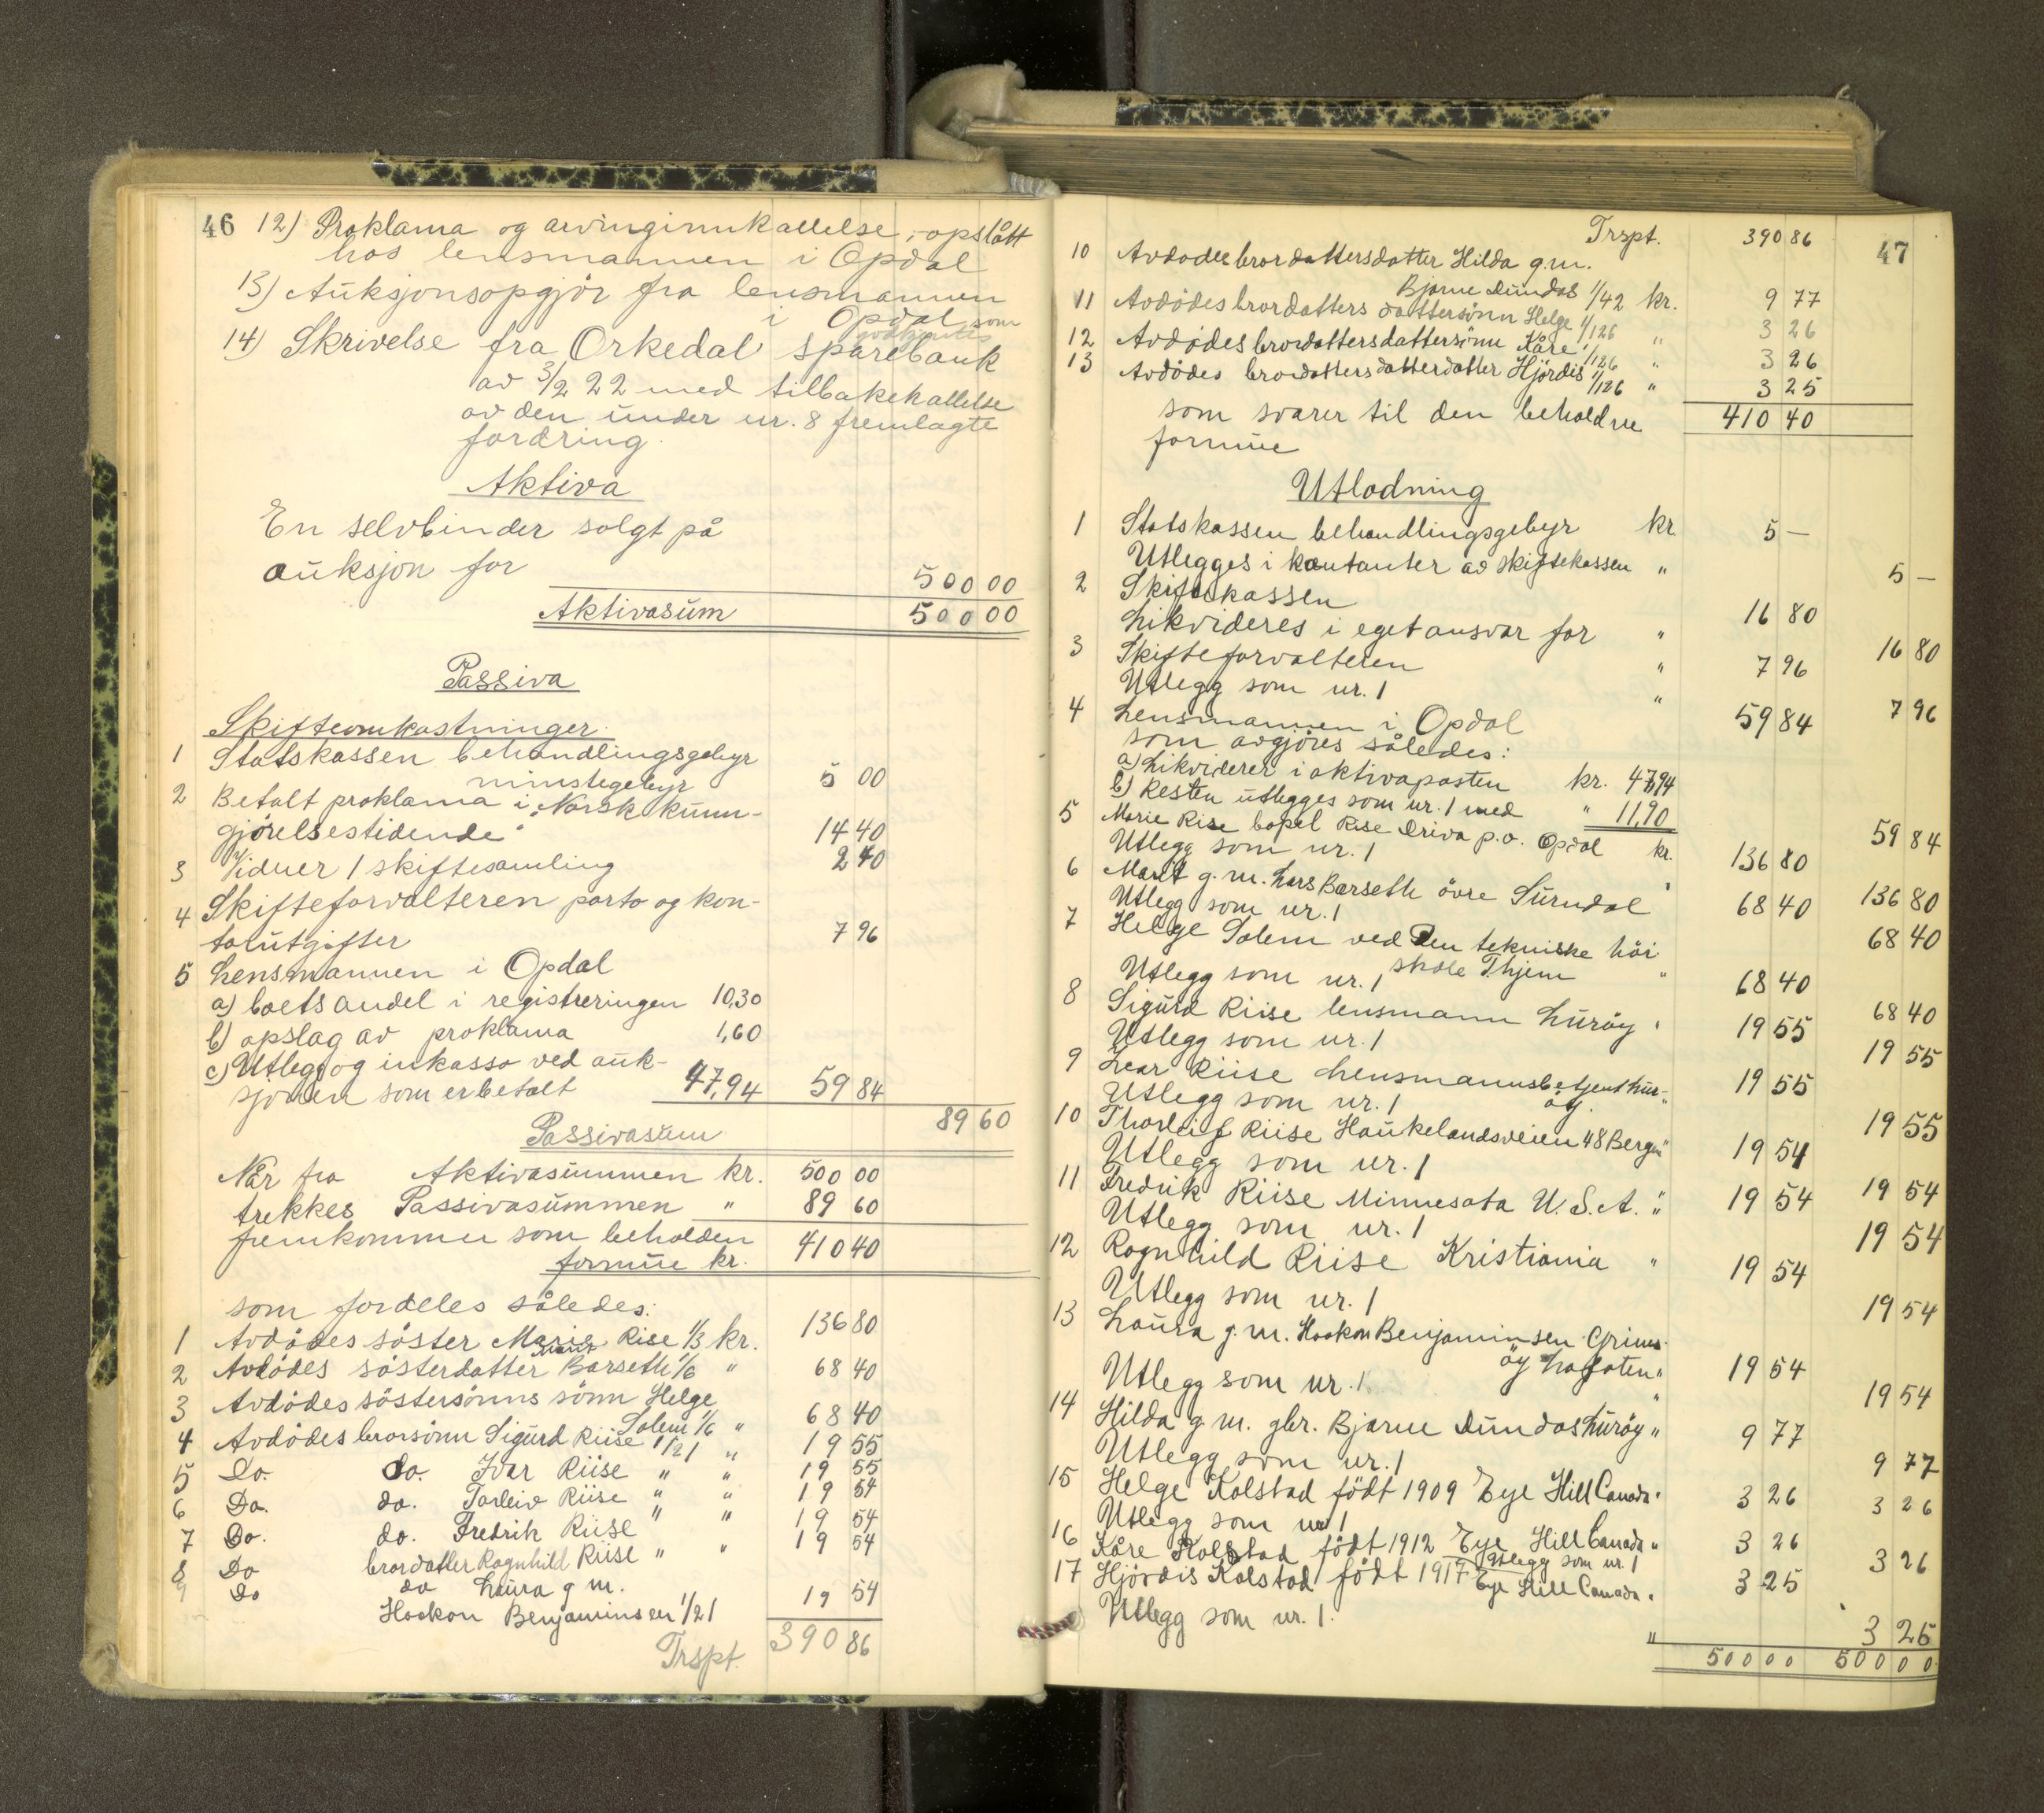 46 12) Proklama og arvinginnkallelse, opslått
hos lensmannen i Opdal
13) Auksjonsopgjör fra lensmannen
i Opdal som
godkjentes
14) Skrivelse fra Orkedal sparebank
av 3/2 22 med tilbakekallelse
av den under nr. 8 fremlagte
fordring.
Aktiva
En selvbinder solgt på
auksjon for 500 00
Aktivasum 500 00
Passiva
Skifteomkostninger
1 Statskassen behandlingsgebyr
minstegebyr 5 00
2 Betalt proklama i "Norsk kunn-
gjörelsestidende" 14 40
3 Vidner 1 skiftesamling 2 40
4 Skifteforvalteren porto og kon-
torutgifter 7 96
5 Lensmannen i Opdal
a) boets andel i registreringen 10,30
b) opslag av proklama 1,60
c) Utlegg og inkasso ved auk-
sjonen som er betalt 47,94 59 84
Passivasum 89 60
Når fra Aktivasummen kr. 500 00
trekkes Passivasummen " 89 60
fremkommer som beholden
formue kr. 410 40
som fordeles således:
1 Avdödes söster Marie Rise 1/3 kr. 136 80
2 Avdödes sösterdatter Marit Barseth 1/6 " 68 40
3 Avdödes söstersönns sönn Helge
Solem 1/6 " 68 40
4 Avdödes brorsönn Sigurd Riise 1/21 " 19 55
5 Do. do. Ivar Riise " " 19 55
6 Do. do. Torleiv Riise " " 19 54
7 Do. do. Fredrik Riise " " 19 54
8 Do brordatter Ragnhild Riise " " 19 54
9 Do do Laura g m.
Haakon Benjaminsen 1/21 19 54
Trspt. 390 86
Trspt. 390 86 47
10 Avdödes brordattersdatter Hilda g.m.
Bjarne Dundas 1/42 kr. 9 77
11 Avdödes brordatters dattersönn Helge 1/126 " 3 26
12 Avdödes brordattersdattersönn Kåre 1/126 " 3 26
13 Avdödes brordattersdatterdatter Hjördis 1/126 " 3 25
som svarer til den beholdne 410 40
formue
Utlodning
1 Statskassen behandlingsgebyr kr. 5 —
Utlegges i kontanter av skiftekassen " 5 —
2 Skiftekassen 16 80
Likvideres i eget ansvar for " 16 80
3 Skifteforvalteren " 7 96
Utlegg som nr. 1 " 7 96
4 Lensmannen i Opdal 59 84
som avgjöres således:
a) Likviderer i aktivaposten kr. 47,94
b) Resten utlegges som nr. 1 med " 11,90 59 84
5 Marie Rise bopel Rise Driva p.o. Opdal kr. 136 80
Utlegg som nr. 1 136 80
6 Marit g. m. Lars Barseth övre Surndal " 68 40
Utlegg som nr. 1 68 40
7 Helge Solem ved Den tekniske höi
skole Thjem " 68 40
Utlegg som nr. 1 68 40
8 Sigurd Riise lensmann Luröy " 19 55
Utlegg som nr. 1 19 55
9 Ivar Riise Lensmannsbetjent Lur-
öy. " 19 55
Utlegg som nr. 1 19 55
10 Thorleif Riise Haukelandsveien 48 Bergen " 19 54
Utlegg som nr. 1 19 54
11 Fredrik Riise Minnesota U.S.A. " 19 54
Utlegg som nr. 1 19 54
12 Ragnhild Riise Kristiania " 19 54
Utlegg som nr. 1 19 54
13 Laura g. m. Haakon Benjaminsen Grims-
öy Lofoten " 19 54
Utlegg som nr. 1. 19 54
14 Hilda g. m. gbr. Bjarne Dundas Luröy " 9 77
Utlegg som nr. 1 9 77
15 Helge Kolstad födt 1909 Eye Hill Canada " 3 26
Utlegg som nr 1 3 26
16 Kåre Kolstad födt 1912 Eye Hill Canada " 3 26
Utlegg som nr. 1 3 26
17 Hjördis Kolstad födt 1917 Eye Hill Canada " 3 25
Utlegg som nr. 1. 3 25
" 500 00 500 00